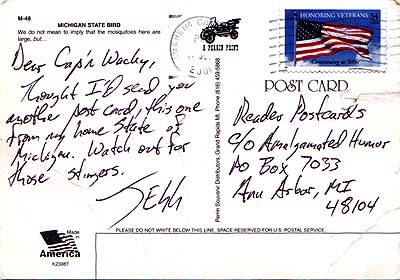 M-48
MICHIGAN STATE BIRD
We do not mean to imply that the mosquitoes here are
large, but...
Dear Cap'n Wacky,
Thought I'd send you
another post card, this one
from my home State of
Michigan. Watch out for
those stingers.
JEFF
Made in
America
K23967
A PENRIN PRINT
Penrin Souvenir Distributors, Grand Rapids MI, Phone (616) 459-5668
HONORING VETERANS
Continuing to Serve
POST CARD
Reader Postcards
c/o Amalgamated Humor
PO Box 7033
Ann Arbor, MI
48104
PLEASE DO NOT WRITE BELOW THIS LINE. SPACE RESERVED FOR U.S. POSTAL SERVICE.